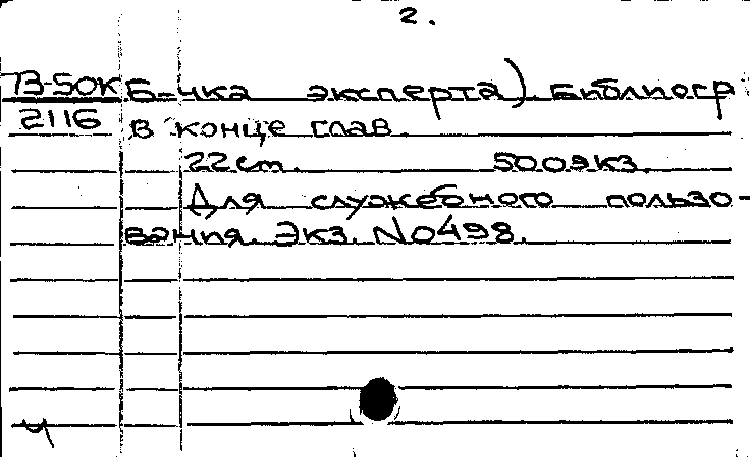 2.
ТЗ-50К Б-чка эксперта). Библиогр.
2116 в конце глав.
22 ст. 500 экз.
Для служебного пользо-
вания. Экз. №0498.
Ч